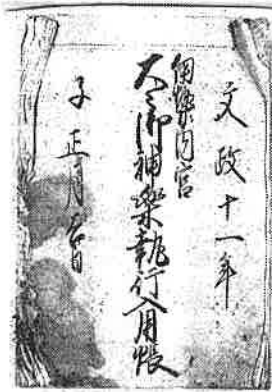 文政十一年
伊勢内宮
大々御神樂執行入用帳
子正月吉日